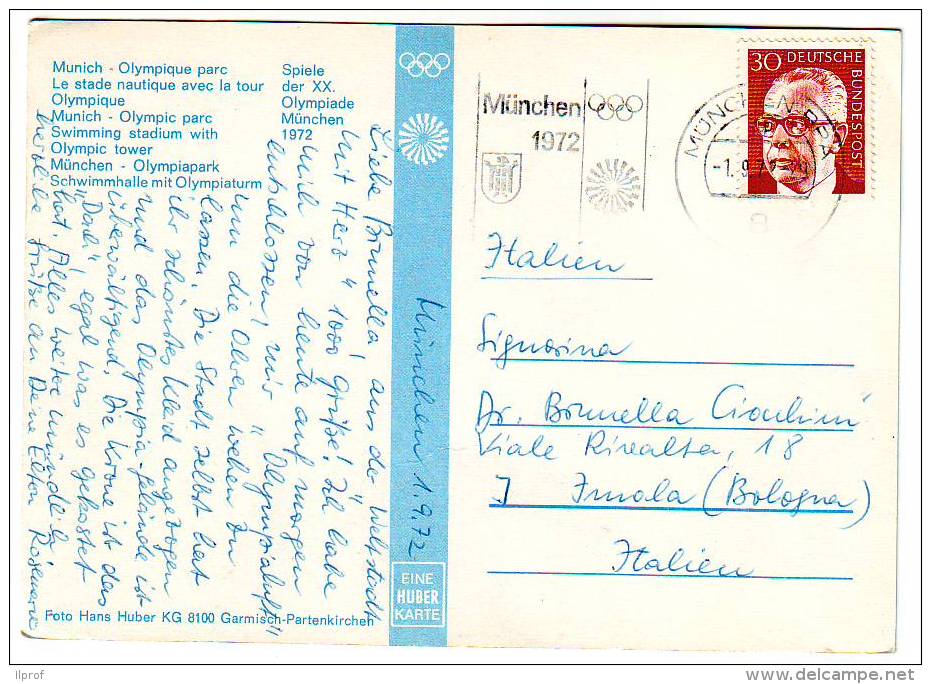 Munich - Olympique parc
Le stade nautique avec la tour
Olympique
Munich - Olympic parc
Swimming stadium with
Olympic tower
München - Olympiapark
Schwimmhalle mit Olympiaturm
Spiele
der XX.
Olympiade
München
1972
Liebe Brunella, aus der Weltstadt
mit Herz 4 1000 Grüße! Ich habe
mich von heute auf morgen
entschlossen, mir "Olympialuft"
um die Ohren wehen zu
lassen. Die Stadt selbst hat
ihr schönstes Kleid angezogen
und das Olympia-gelände ist
überwältigend, Die Krone ist das
"Dach" egal was es gekostet
hat. Alles weitere mündlich
herzliche Grüße an Deine Eltern Rosemarie
Foto Hans Huber KG 8100 Garmisch-Partenkirchen
München 1.9.72
EINE
HUBER
KARTE
München
1972
MÜNCHEN
-1.9.72
30 DEUTSCHE
BUNDESPOST
Italien
Signorina
Dr. Brunella Cioulini
Viale Rivalta, 18
I Imola (Bologna)
Italien
llprof
www.delcampe.net